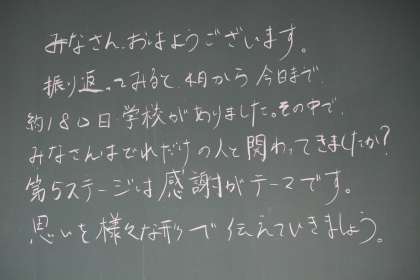 みなさん、おはようございます。
振り返ってみると、4月から今日まで、
約180日学校がありました。その中で、
みなさんはどれだけの人と関わってきましたか?
第5ステージは感謝がテーマです。
思いを様々な形で伝えていきましょう。